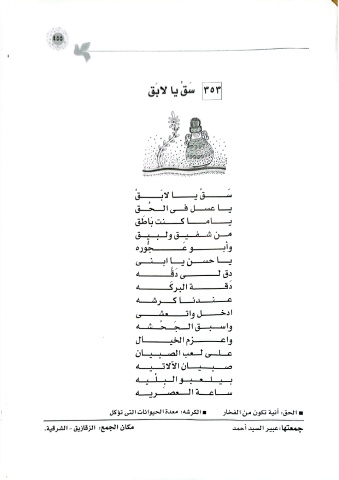 ٣٥٣ سَقْ يا لابَق
سَـقْ يـــا لابَـــقْ
يـا عـسـل فـى الحُـق
يـا مـا كـنـت بَـاطَق
مـن شـفـيـق ولـبـيـق
وأبــو عَـجُّــوره
يـا حـسـن يـا ابـنـى
دق لـــى دَقَّـــه
دَقـة الـبـركَــه
عـنـدنـا كـرشـه
ادخـل واتـعـشـى
واسـبـق الجَـحْـشـه
واعـزم الخـيـال
عـلـى لـعـب الـصـبـيـان
صـبـيـان الآلاتـيـه
بـيـلـعـبـو الـبـنْـيـه
سـاعـة الـعـصـريـه
■ الحق: آنية تكون من الفخار ■ الكرشه: معدة الحيوانات التى تؤكل
جمعتها: عبير السيد أحمد مكان الجمع: الزقازيق - الشرقية.